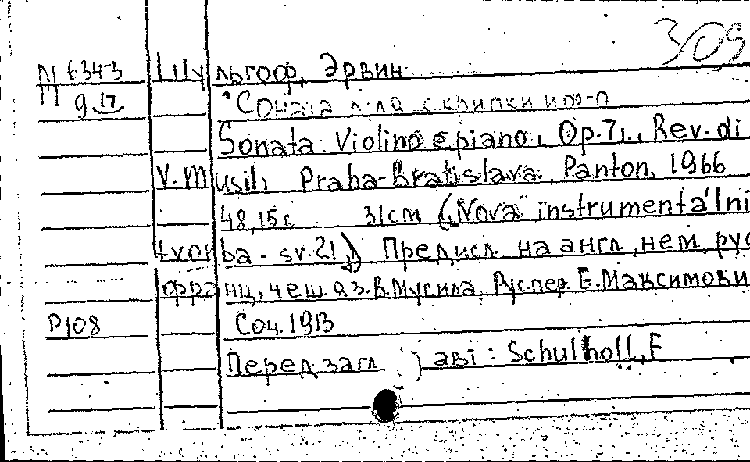 309
П 6343 Шульгоф, Эрвин.
П 9 IV "Соната для скрипки и ф-п
Sonata. Violino e piano, Op. 7., Rev. di
V. Musil. Praha-Bratislava. Panton, 1966
48, 15 с 31 см (Nova instrumentálni
tvorba - sv. 21) Предисл. на англ, нем, рус
франц, чеш. яз. В. Мусила, Рус. пер. Е. Максимови
P108 Соч. 1913
Перед загл авт: Schulhoff, E